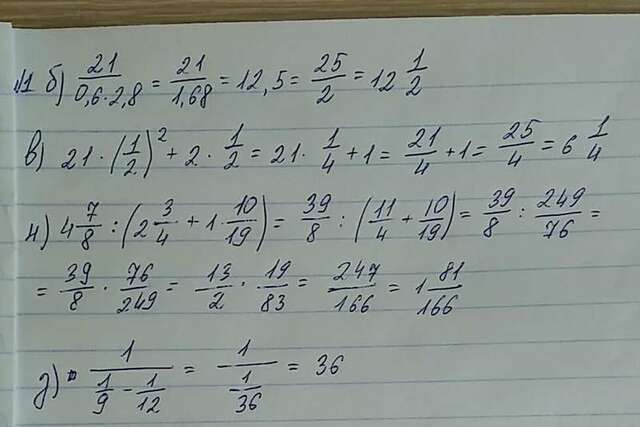 №1 б) 21/(0,6·2,8) = 21/1,68 = 12,5 = 25/2 = 12 1/2
в) 21·(1/2)² + 2·1/2 = 21·1/4 + 1 = 21/4 + 1 = 25/4 = 6 1/4
н) 4 7/8 : (2 3/4 + 1·10/19) = 39/8 : (11/4 + 10/19) = 39/8 : 249/76 =
= 39/8 · 76/249 = 13/2 · 19/83 = 247/166 = 1 81/166
д) 1/(1/9 - 1/12) = 1/(-1/36) = 36